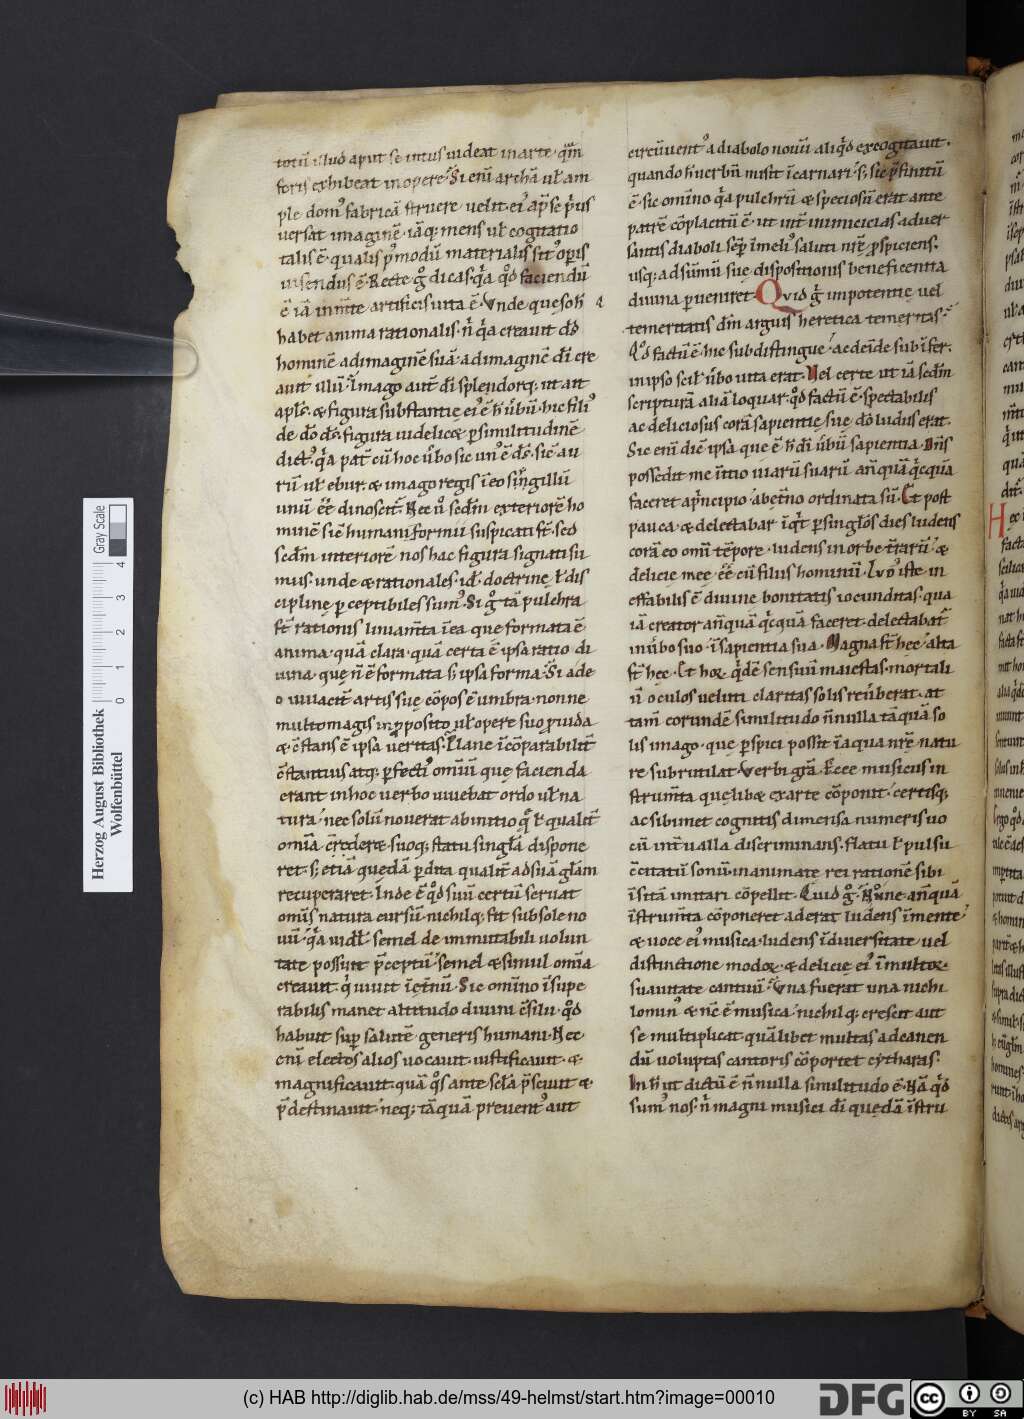 totū illud aput se intus uideat in arte · qͣm
foris exhibeat in opere · Si enī archā uƚ am
ple domꝰ fabricā struere uelit · eiꝰ ap̄ se pͥus
uersat imaginē · iāq; mens uƚ cogitatio
talis ē · qualis pꝰmodū materialis sit opis
uisendus ē · Recte gͦ dicas · qͥa qͦd faciendū
ē iā in mēte artificis uita ē · Vnde queso hͦ
habet anima rationalis · nͥ qͥa creauit dͥs
hominē ad imaginē suā · ad imaginē dī cre
auit illū · Imago aut̄ dī splendorq; ut ait
apƚs · & figura substantie eiꝰ ē hͦ ūbū · hic filiꝰ
de dō dͥs · figura uidelicet p similitudinē
dictꝰ · qͥa pat̄ cū hoc ūbo sic unꝰ ē dͥs · sic au
rū uƚ ebur · & imago regis ī eo singillū
unū ēē dinoscit̄ · Nec uͦ scdm exteriorē ho
minē sic humani formū suspicati st̄ · sed
scdm interiorē nos hac figura signati su
mus · unde & rationales · id · doctrine ƚ dis
cipline pceptibiles sumꝰ · Si gͦ tā pulchra
st̄ rationis liniam̄ta ī ea que formata ē
anima · quā clara · quā certa ē ipsa ratio di
uina · que n̄ ē formata s; ipsa forma · Si ade
o uiuacit̄ artis sue cōpos ē umbra · nonne
multomagis in pposito uƚ opere suo puida
& cstans ē ipsa ueritas · Plane īcōparabilit̄
cstantius atq; pfectiꝰ omiū que facienda
erant in hoc uerbo uiuebat ordo uƚ na
tura · nec solū nouerat ab initio qͣ ƚ qualit̄
omīa crederet · suoq; statu singlā dispone
ret · s; etiā quedā pdita qualit̄ ad suā glīam
recuperaret · Inde ē qͦd suū certū seruat
omīs natura cursū · nichilq; fit sub sole no
uū · qͥa uidƚ semel de inmutabili uolun
tate possunt pceptū · semel & simul omīa
creauit · qͥ uiuit ī etnū · Sic omīno īsupe
rabilis manet altitudo diuini csilii · qͦd
habuit sup salutē generis humani · Nec
enī electos alios uocauit · iustificauit · &
magnificauit · quā qͦs ante scla p̄sciuit &
p̄destinauit · neq; tāquā preuentꝰ aut
circūuentꝰ a diabolo nouū aliqͥd excogitauit ·
quando hͦ uerbū misit īcarnari · s; sic p̄finitū
ē · sic omīno qͥa pulchrū & speciosū erat ante
patrē cōplacitū ē · ut int̄ inimicicias aduer
santis diaboli sep̄ ī meliꝰ saluti nrē pspiciens ·
usq; ad sūmū sue dispositionis beneficentia
diuina pueniret · Qvid gͦ impotentie uel
temeritatis dm̄ arguis heretica temeritas ·
Qͦd factū ē · hic subdistingue · ac deīde sub īfer ·
in ipso sciƚ ūbo uita erat · Vel certe ut iā scdm
scripturā aliā loquar · qͦd factū ē · spectabilis
ac deliciosus corā sapientie sue dō ludus erat ·
Sic enī diē ipsa que ē hͦ dī ūbū sapientia · Dn̄s
possedit me ī itio uiarū suarū an̄quā qͥcquā
faceret a pͥncipio · ab etn̄o ordinata sū · Et post
pauca · & delectabar īqt̄ p singlōs dies ludens
corā eo omī tēpore · ludens in orbe tr̄arū · &
delicie mee · ēē cū filiis hominū · Ludꝰ iste in
effabilis ē diuine bonitatis iocunditas · qua
iā creator an̄quā qͥcquā faceret delectabat̄
in ūbo suo · ī sapientia sua · Magna st̄ hec · alta
st̄ hec · Et hoꝝ qͥdē sensuū maiestas · mortali
ū oculos ueluti claritas solis reūberat · at
tam̄ corundē similitudo n̄nulla tāquā so
lis imago · que pspici possit ī aqua nrē natu
re subrutilat · Verbi grā · Ecce musicus in
strum̄ta quelibet ex arte cōponit · certisq;
ac sibimet cognitis dimensa numeris uo
cū int̄ualla discriminans · flatu ƚ pulsu
ccitatū sonū · inanimate rei rationē sibi
īsitā imitari cōpellit · Quid gͦ · Nonne an̄quā
īstrum̄ta cōponeret aderat ludens ī mente ·
& uoce eiꝰ musica · ludens ī diuersitate uel
distinctione modoꝝ · & delicie eiꝰ ī multoꝝ
suauitate cantuū · Vna fuerat una nichi
lominꝰ & nc̄ ē musica · nichilq; crescit aut
se multiplicat quālibet multas ad canen
dū uoluptas cantoris cōportet cytharas ·
In hͦ ut dictū ē n̄nulla similitudo ē · Nā qͥd
sumꝰ nos · nͥ magni musici dī quedā īstru
Herzog August Bibliothek
Wolfenbüttel
Gray Scale
0 1 2 3 4
(c) HAB http://diglib.hab.de/mss/49-helmst/start.htm?image=00010
DFG
cc BY SA